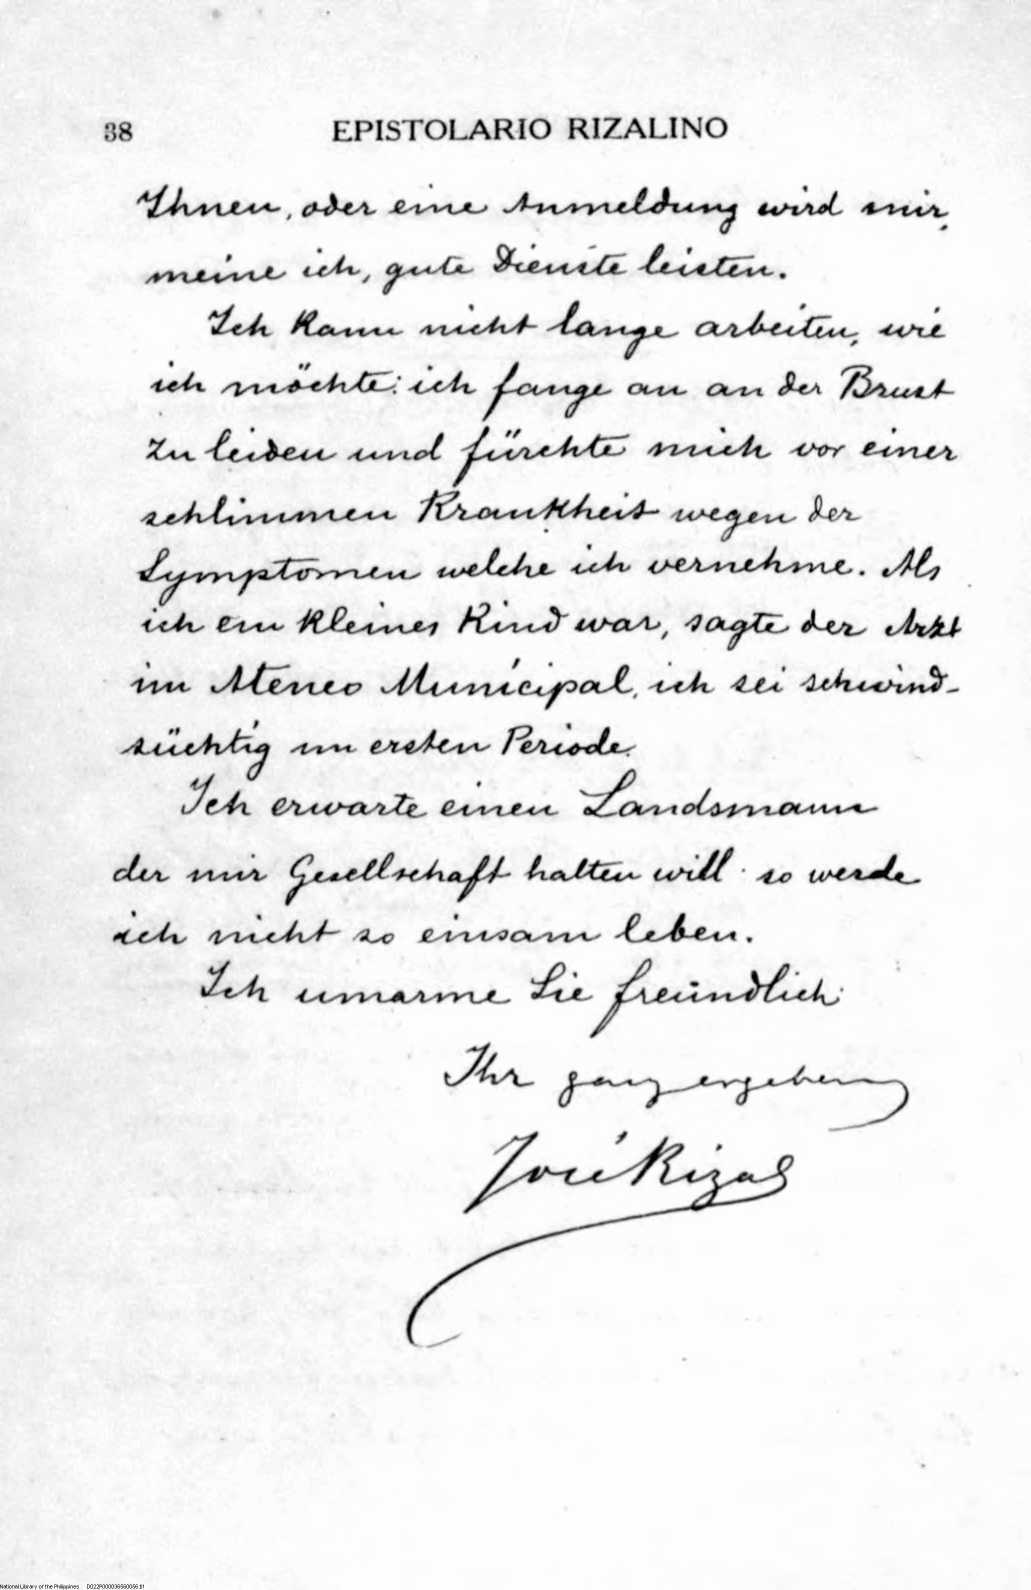 38 EPISTOLARIO RIZALINO
Ihnen, oder eine Anmeldung wird mir,
meine ich, gute Dienste leisten.
Ich kann nicht lange arbeiten, wie
ich möchte: ich fange an an der Brust
zu leiden und fürchte mich vor einer
schlimmen Krankheit wegen der
Symptomen welche ich vernehme. Als
ich ein kleines Kind war, sagte der Arzt
im Ateneo Municipal, ich sei schwind-
süchtig im ersten Periode.
Ich erwarte einen Landsmann
der mir Gesellschaft halten will: so werde
ich nicht so einsam leben.
Ich umarme Sie freundlich
Ihr ganz ergeben
José Rizal
National Library of the Philippines